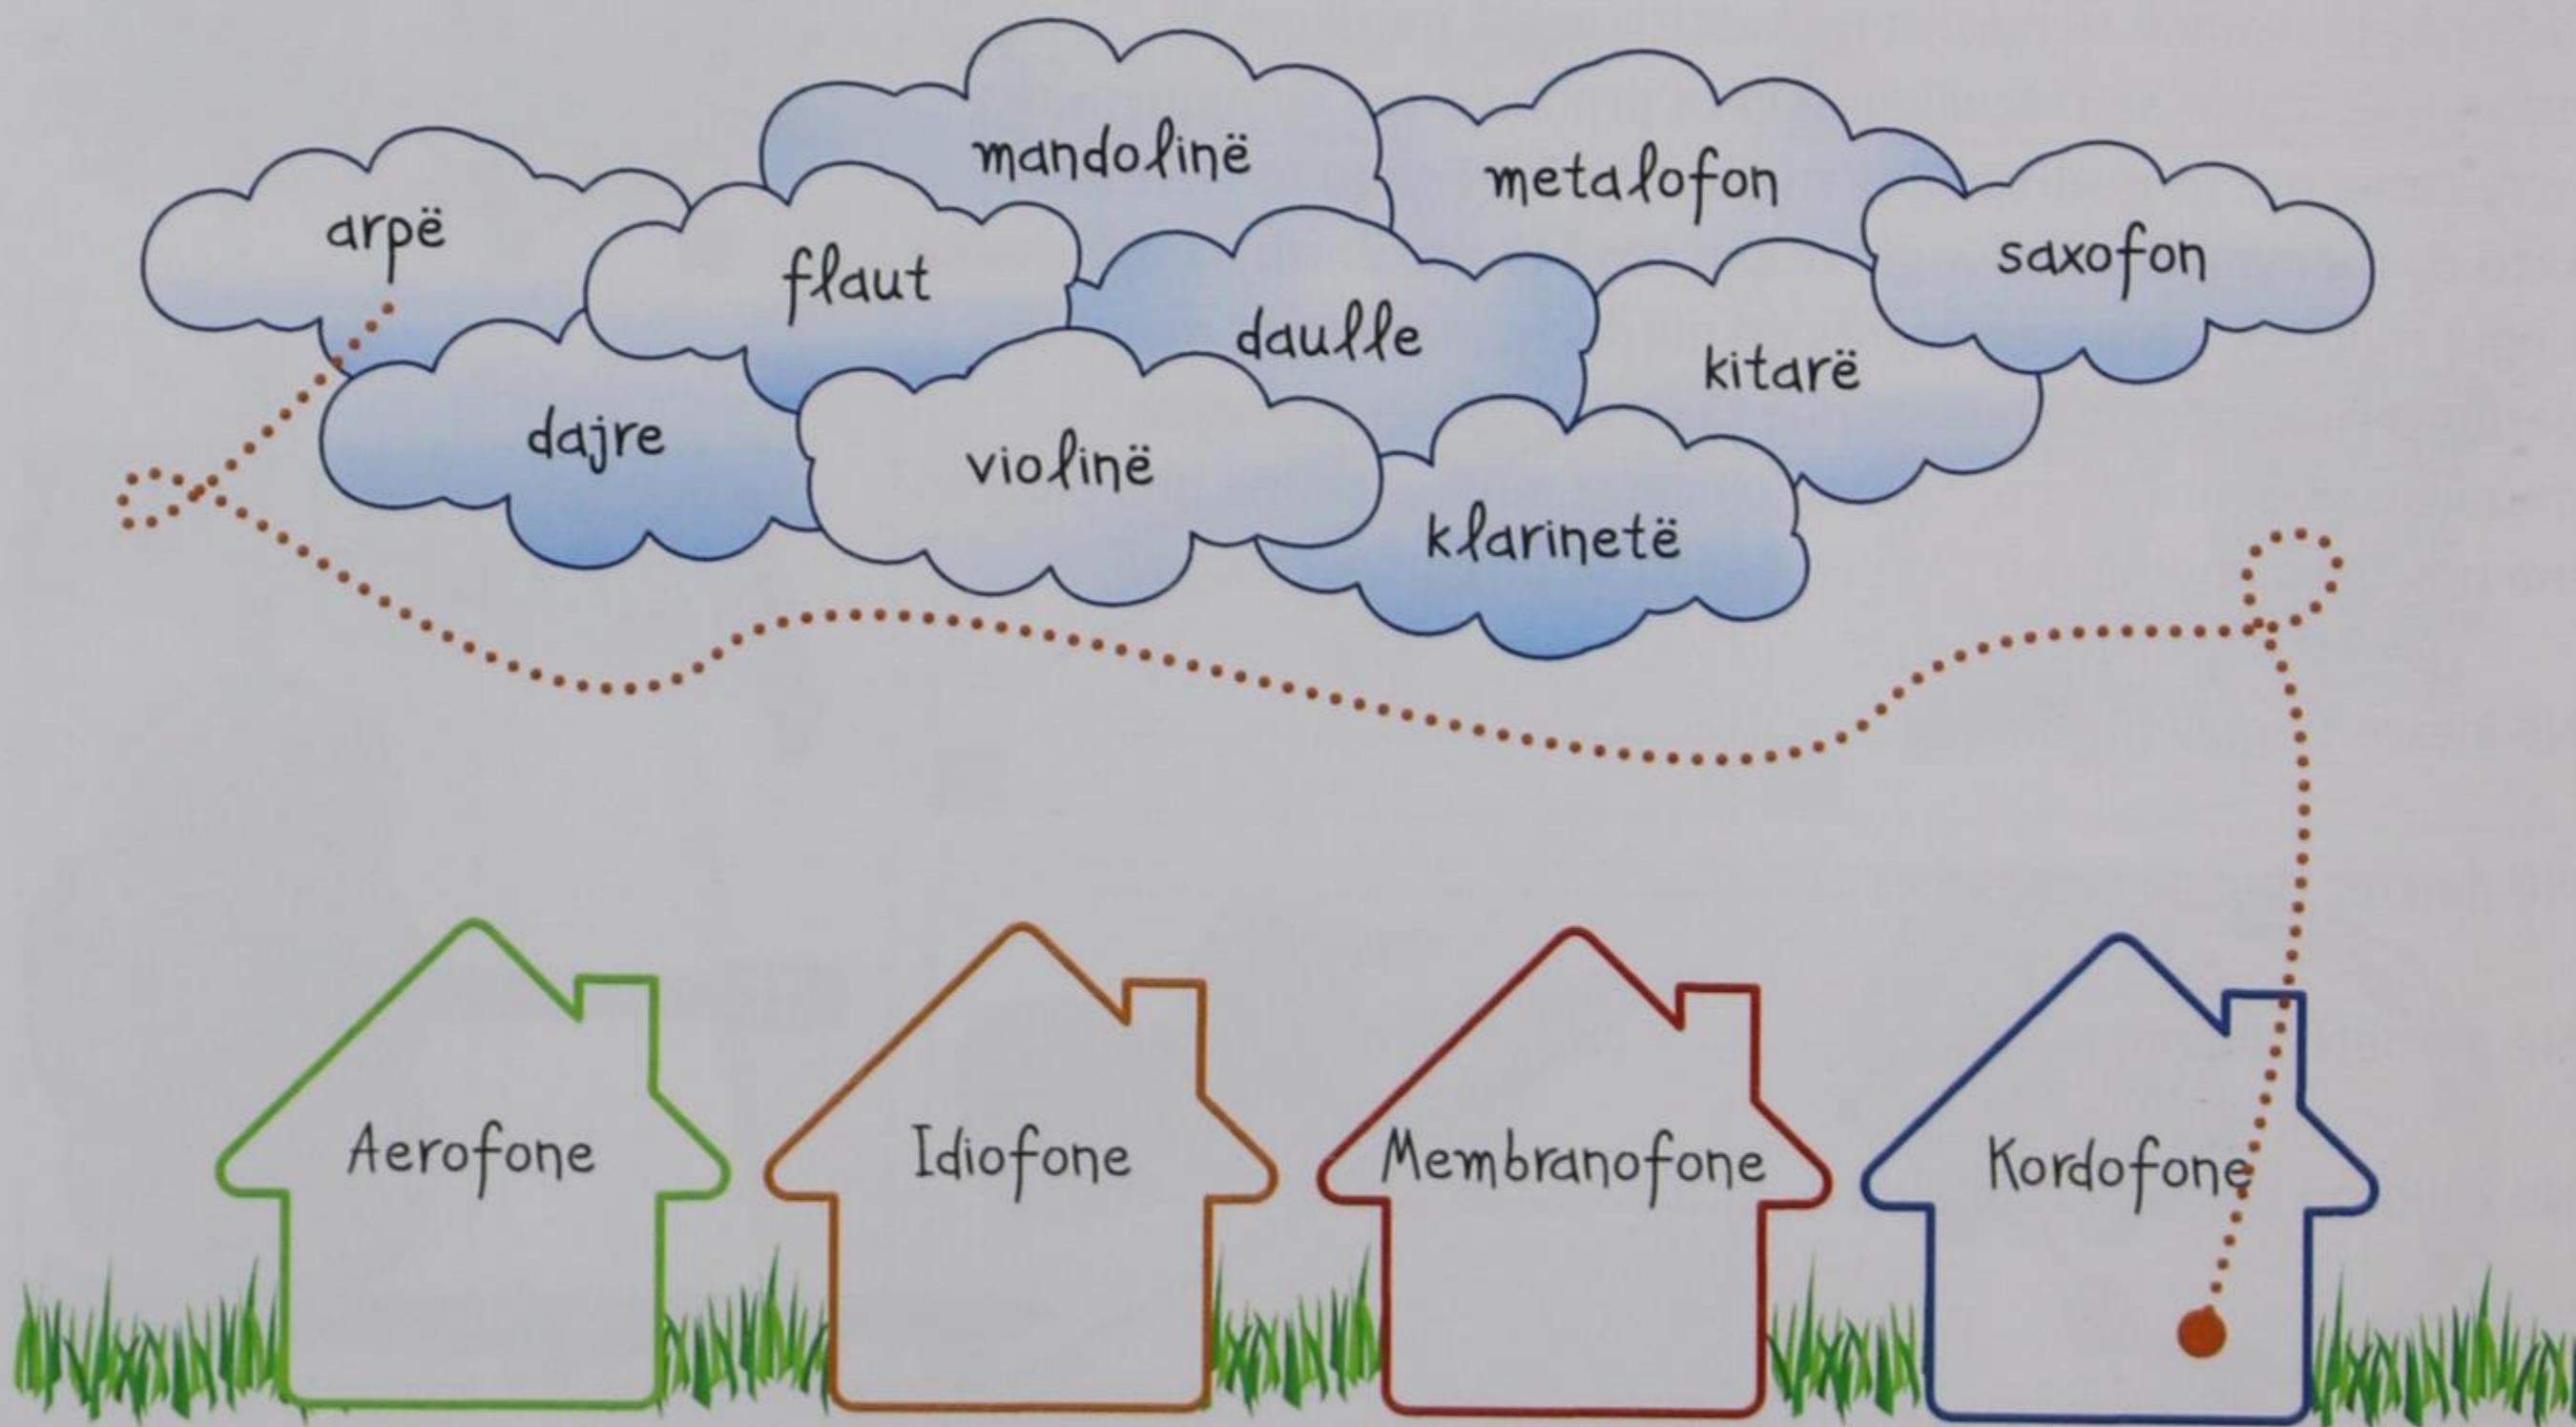 mandolinë
metalofon
arpë
flaut
saxofon
daulle
kitarë
dajre
violinë
klarinetë
Aerofone
Idiofone
Membranofone
Kordofone